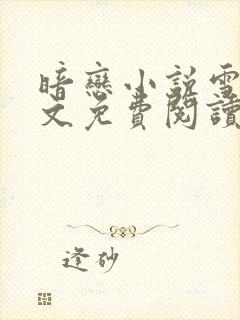 暗戀小說雪
文免費閱讀
逢砂